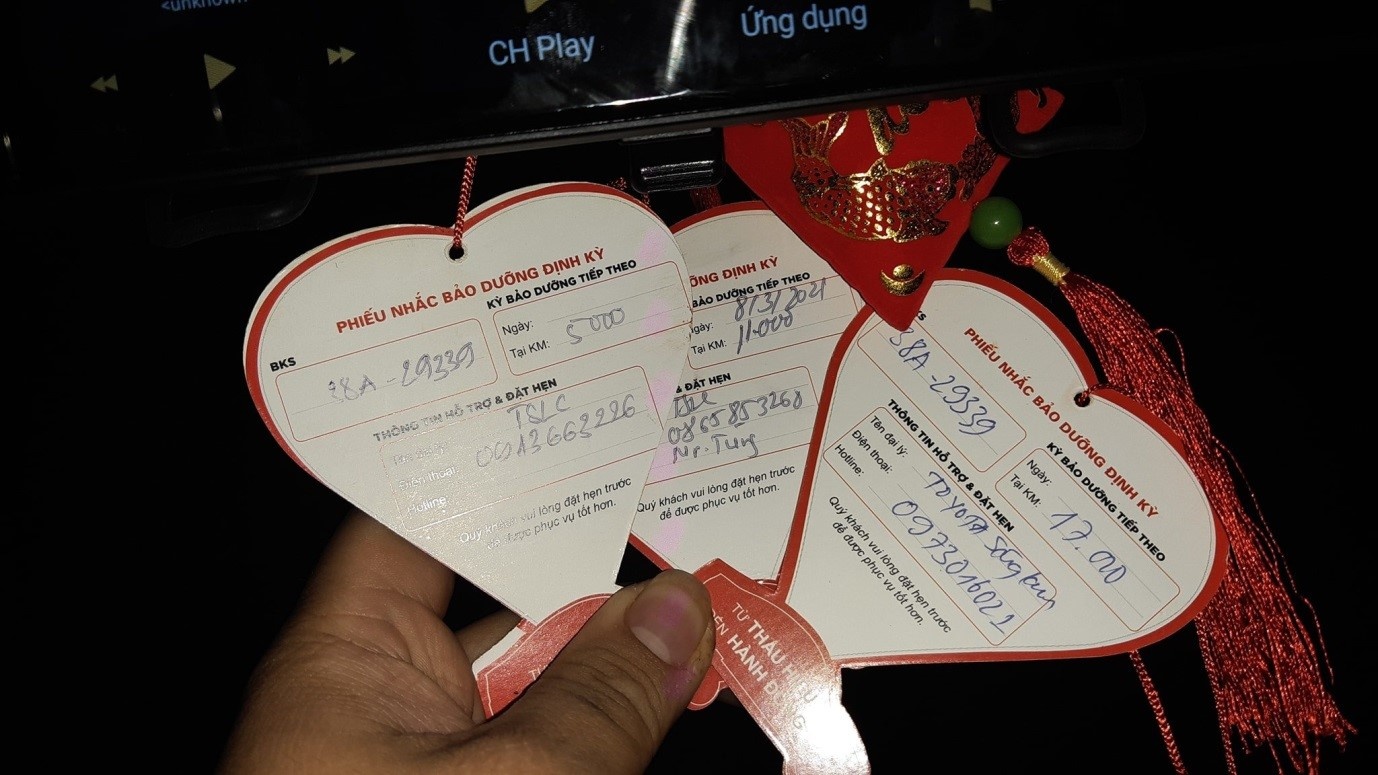 <unknown
CH Play
Ứng dụng
PHIẾU NHẮC BẢO DƯỠNG ĐỊNH KỲ
BKS
38A-29339
KỲ BẢO DƯỠNG TIẾP THEO
Ngày:
Tại KM: 5000
THÔNG TIN HỖ TRỢ & ĐẶT HẸN
TSLC
Điện thoại:
Hotline
Quý khách vui lòng đặt hẹn trước
để được phục vụ tốt hơn.
ƯỠNG ĐỊNH KỲ
BẢO DƯỠNG TIẾP THEO
Ngày: 8/3/2021
Tại KM: 11.000
& ĐẶT HẸN
0865853268
Mr. Tùng
Quý khách vui lòng đặt hẹn trước
để được phục vụ tốt hơn.
PHIẾU NHẮC BẢO DƯỠNG ĐỊNH KỲ
BKS
38A-29339
KỲ BẢO DƯỠNG TIẾP THEO
Ngày:
Tại KM: 17.000
THÔNG TIN HỖ TRỢ & ĐẶT HẸN
Tên đại lý: TOYOTA
Điện thoại: 0973016021
Hotline:
Quý khách vui lòng đặt hẹn trước
để được phục vụ tốt hơn.
TỪ THẤU HIỂU
ĐẾN HÀNH ĐỘNG